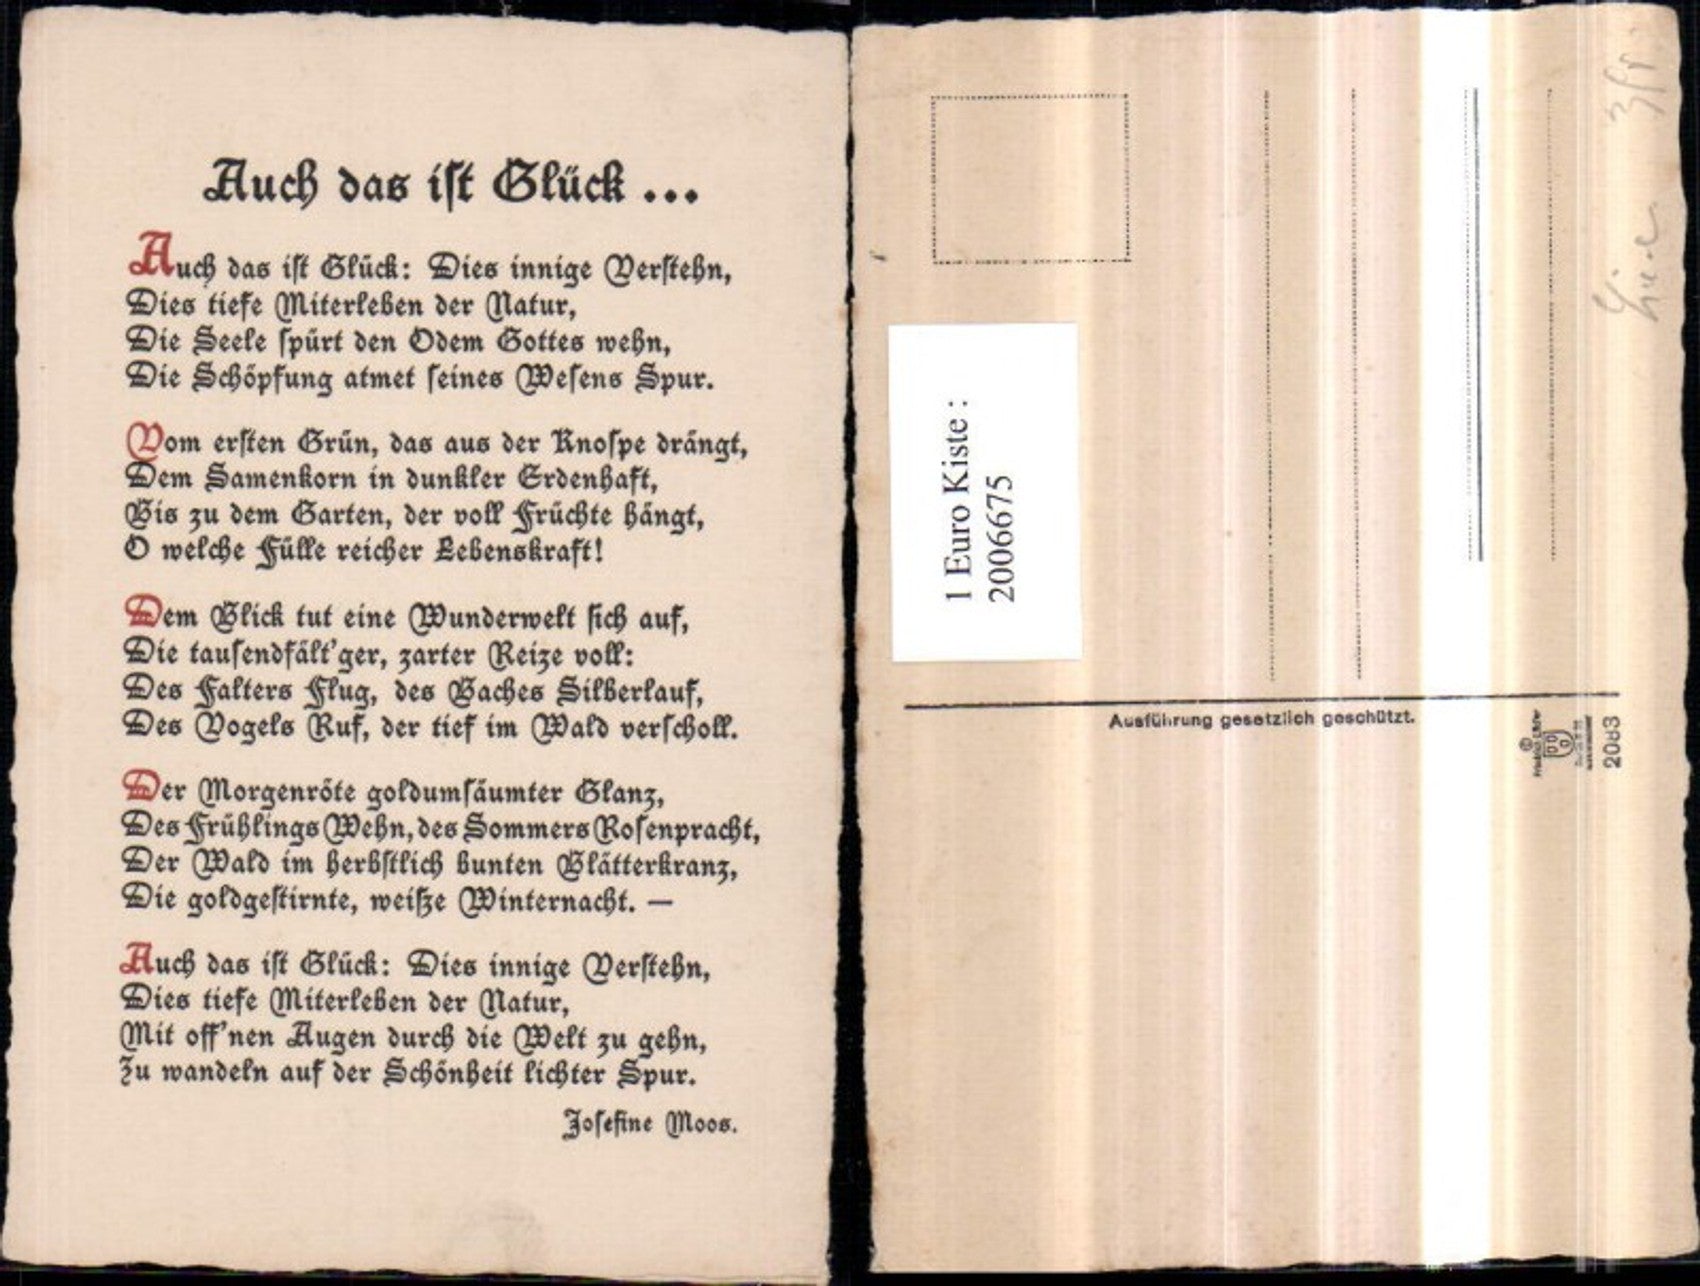 Auch das ist Glück ...
Auch das ist Glück: Dies innige Verstehn,
Dies tiefe Miterleben der Natur,
Die Seele spürt den Odem Gottes wehn,
Die Schöpfung atmet seines Wesens Spur.
Vom ersten Grün, das aus der Knospe drängt,
Dem Samenkorn in dunkler Erdenhaft,
Bis zu dem Garten, der voll Früchte hängt,
O welche Fülle reicher Lebenskraft!
Dem Blick tut eine Wunderwelt sich auf,
Die tausendfält'ger, zarter Reize voll:
Des Falters Flug, des Baches Silberlauf,
Des Vogels Ruf, der tief im Wald verscholl.
Der Morgenröte goldumsäumter Glanz,
Des Frühlings Wehn, des Sommers Rosenpracht,
Der Wald im herbstlich bunten Blätterkranz,
Die goldgestirnte, weiße Winternacht. —
Auch das ist Glück: Dies innige Verstehn,
Dies tiefe Miterleben der Natur,
Mit off'nen Augen durch die Welt zu gehn,
Zu wandeln auf der Schönheit lichter Spur.
Josefine Moos.
1 Euro Kiste :
2006675
Ausführung gesetzlich geschützt.
2083